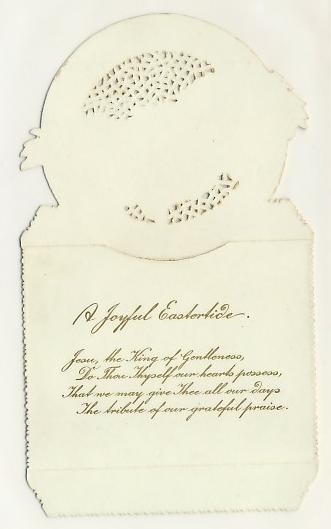 A Joyful Eastertide.
Jesu, the King of Gentleness,
Do Thou Thyself our hearts possess,
That we may give Thee all our days
The tribute of our grateful praise.